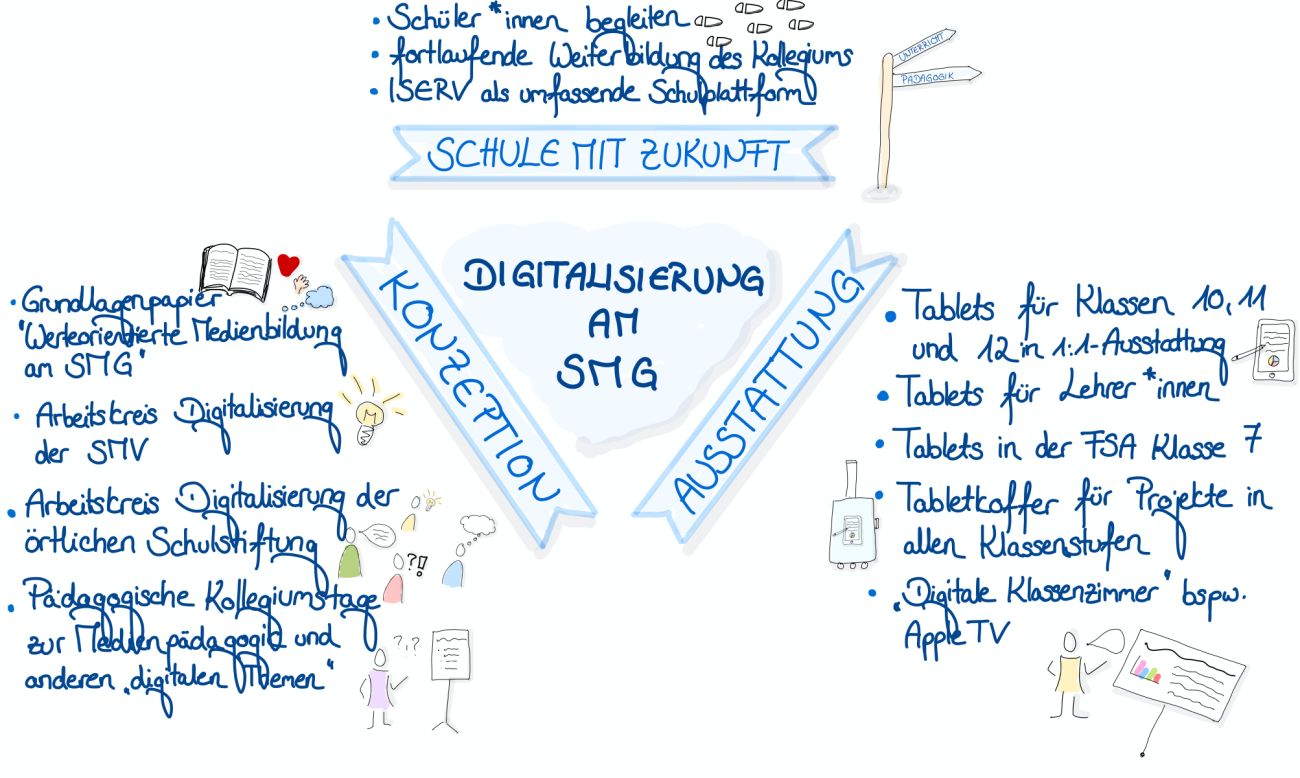 • Schüler*innen begleiten
• fortlaufende Weiterbildung des Kollegiums
• ISERV als umfassende Schulplattform
UNTERRICHT
PÄDAGOGIK
SCHULE MIT ZUKUNFT
DIGITALISIERUNG
AM
SMG
KONZEPTION
• Grundlagenpapier
"Werteorientierte Medienbildung
am SMG"
• Arbeitskreis Digitalisierung
der SMV
• Arbeitskreis Digitalisierung der
örtlichen Schulstiftung
?!
• Pädagogische Kollegiumstage
zur Medienpädagogik und
anderen „digitalen Themen"
?!?
AUSSTATTUNG
• Tablets für Klassen 10, 11
und 12 in 1:1-Ausstattung
• Tablets für Lehrer*innen
• Tablets in der FSA Klasse 7
• Tabletkoffer für Projekte in
allen Klassenstufen
• „Digitale Klassenzimmer" bspw.
Apple TV